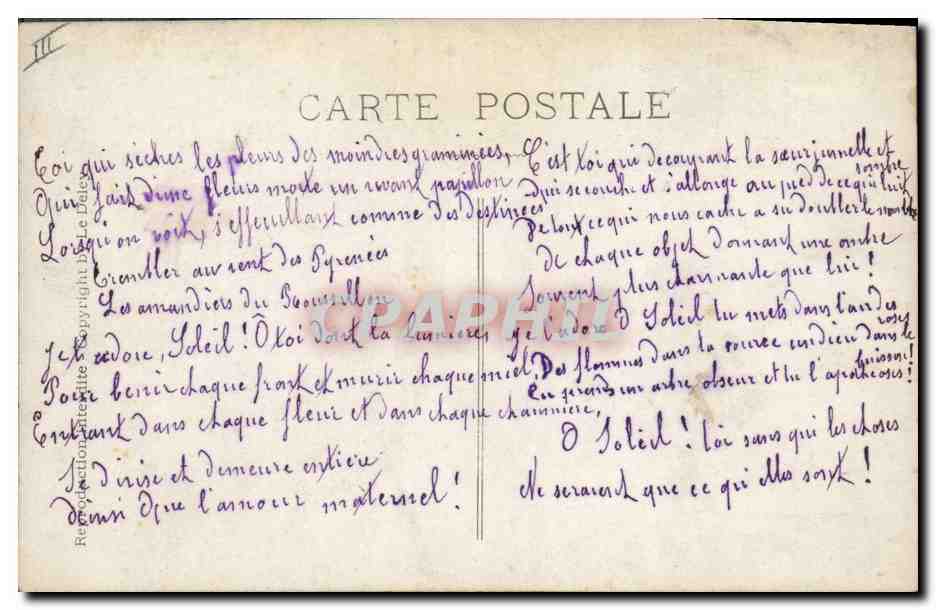 III
CARTE POSTALE
Toi qui sèches les pleurs des moindres graminées,
Qui fait d'une fleurs morte un vivant papillon
Lorsqu'on voit, s'effeuillant comme des destinées
Trembler au vent des Pyrénées
Les amandiers du Roussillon
Je t'adore, Soleil! Ô toi dont la lumière
Pour benir chaque front et murir chaque miel,
Entrant dans chaque fleur et dans chaque chaumière,
Se divise et demeure entière
Ainsi Que l'amour maternel!
C'est toi qui decoupant la sœur jumelle et
sombre
Qui se couche et s'allonge au pied de ce qui luit
De tout ce qui nous cache a su doubler le nombre
de chaque objet donnant une ombre
Souvent plus charmante que lui!
Je t'adore Ô Soleil tu mets dans l'air des
roses
Des flammes dans la source un dieu dans le
buisson!
Tu prends un arbre obscur et tu l'apothéoses!
O Soleil! toi sans qui les choses
Ne seraient que ce qu'elles sont!
Reproduction interdite Copyright by Le Deley
CPAPHIL